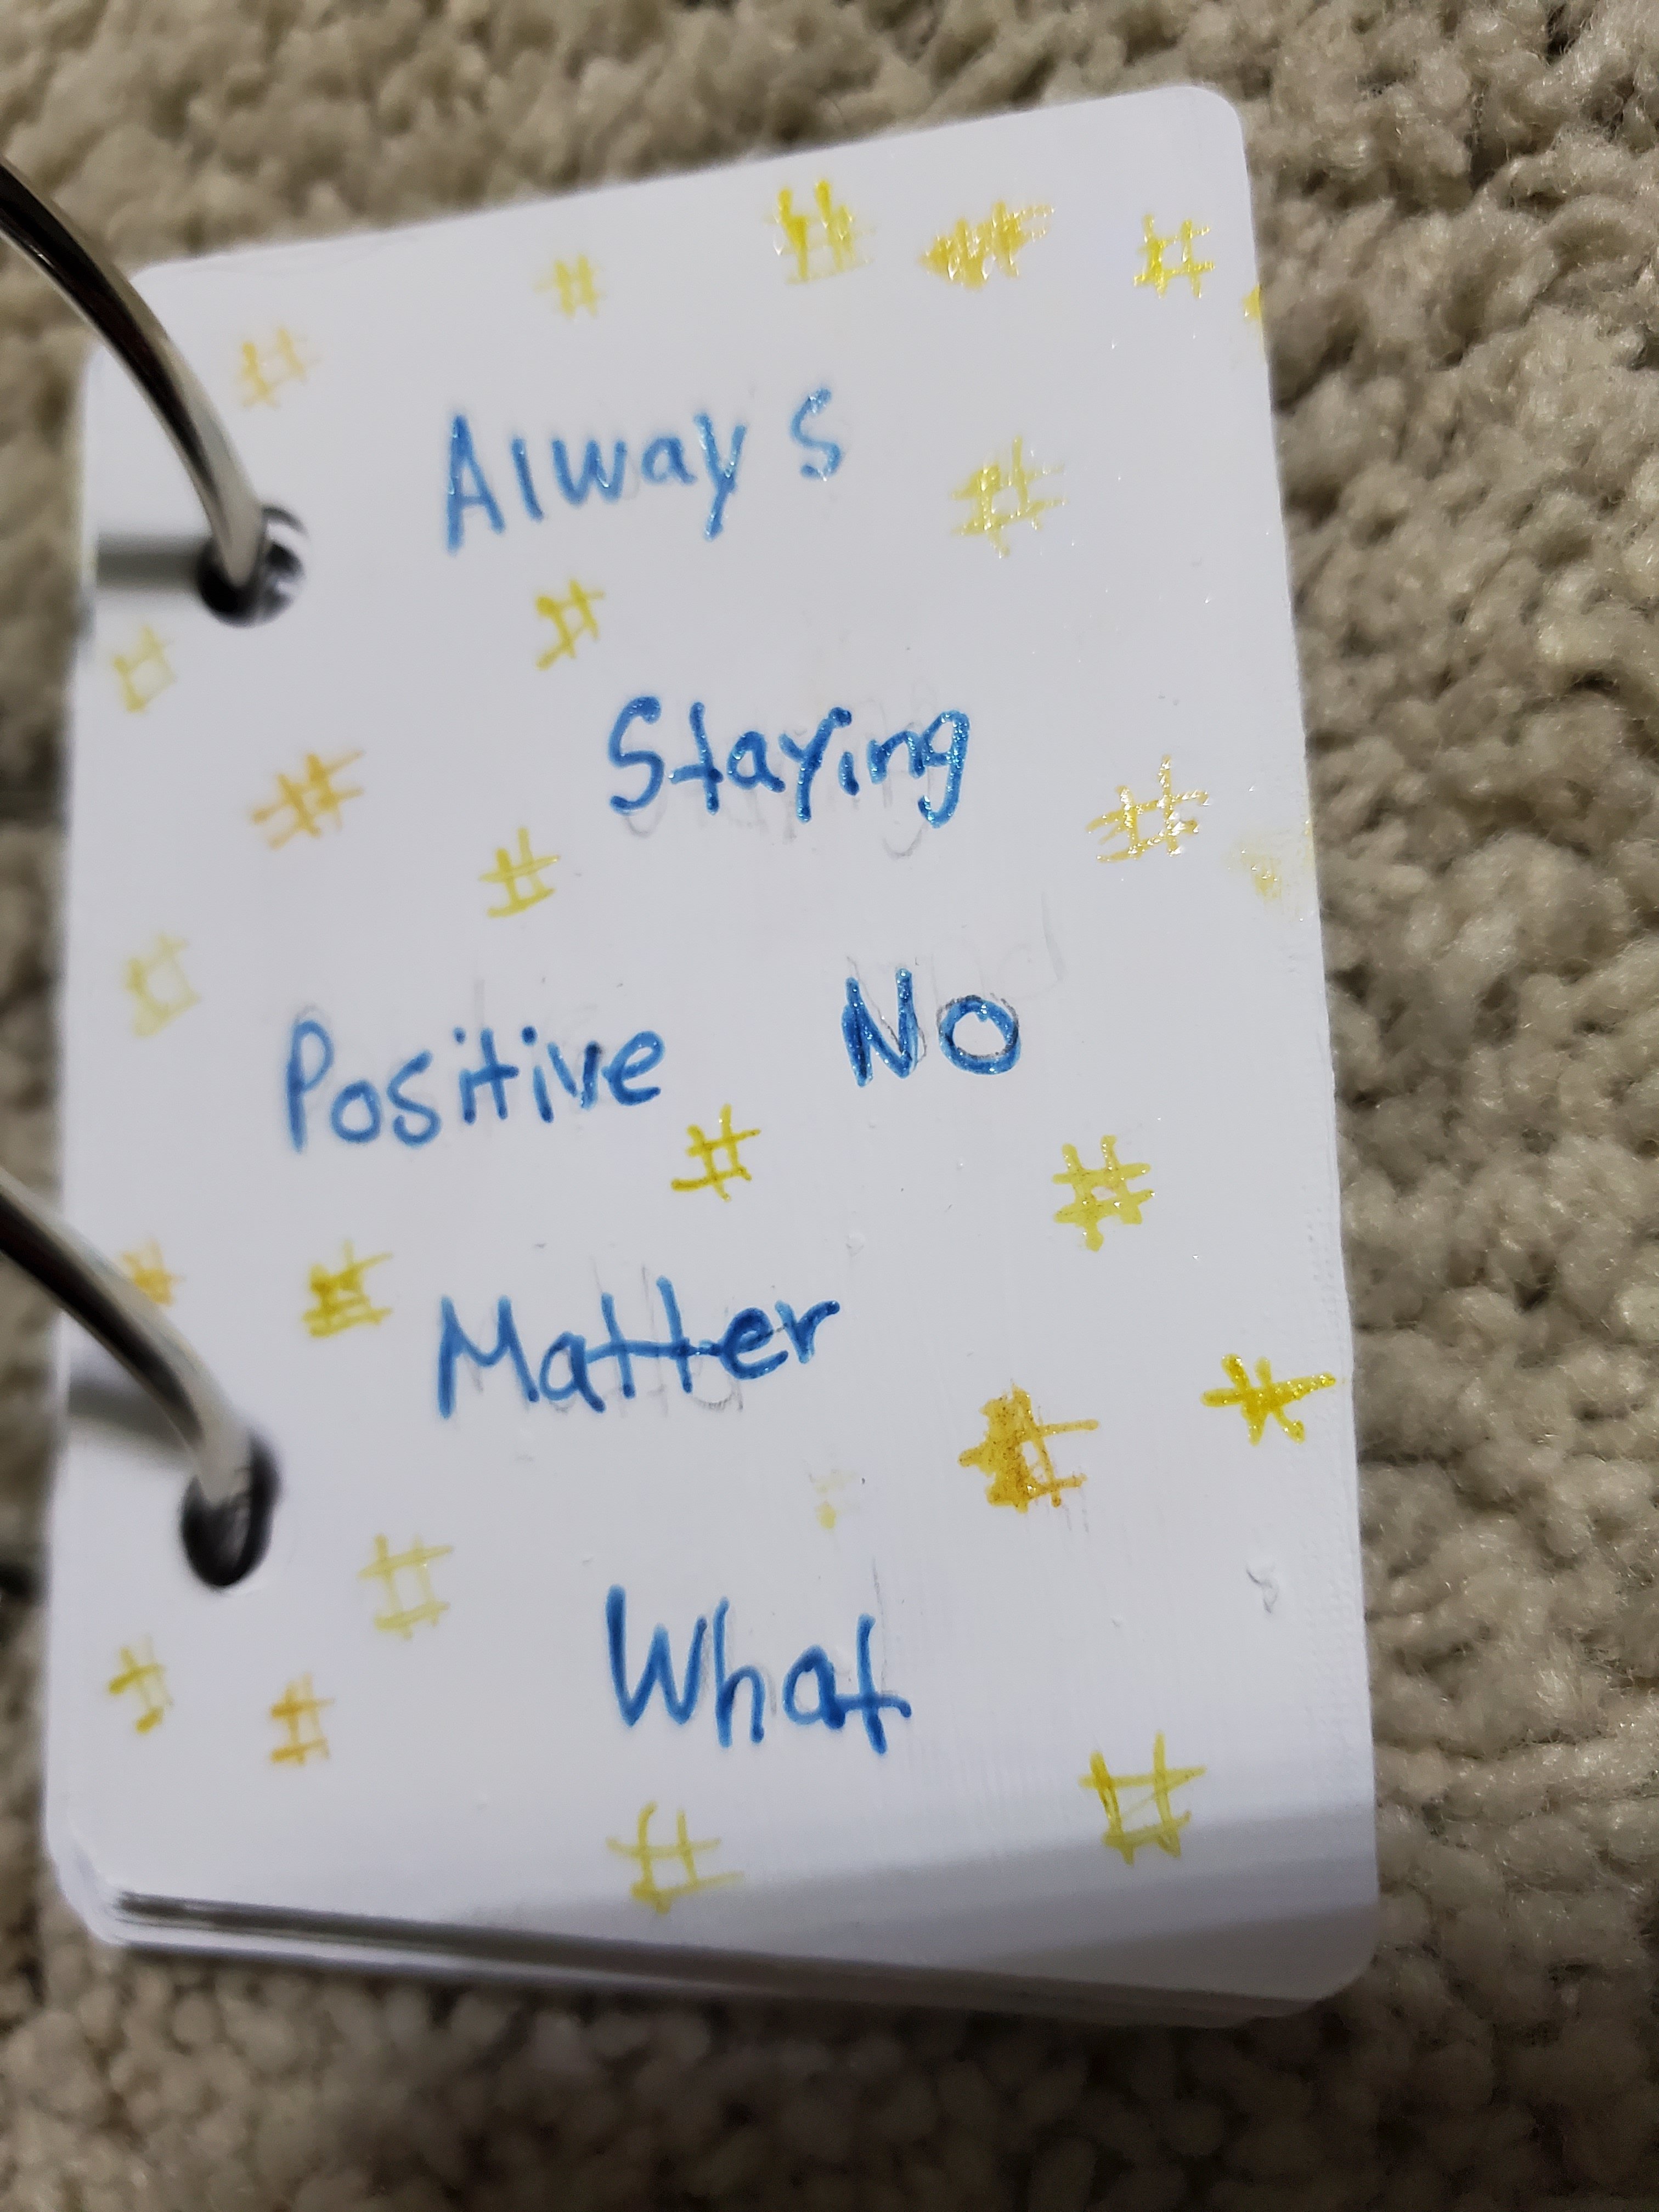 Always
Staying
Positive No
Matter
What